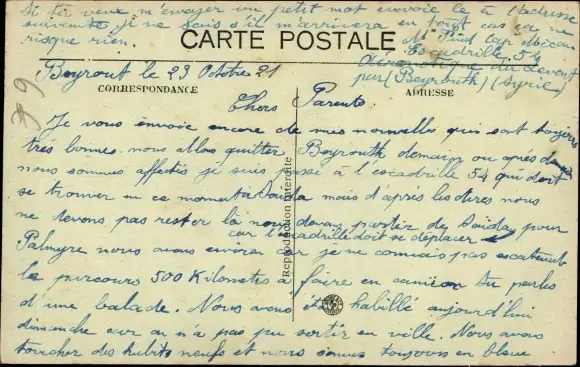 Si tu veux m'envoyer un petit mot envoie le à l'adresse
suivante je ne sais s'il m'arrivera en tout cas ça ne
risque rien.
CARTE POSTALE
Mr Cap mécani
Escadrille 54
Aéronautique du Levant
par (Beyrouth) (Syrie)
Beyrout le 23 Octobre 21
CORRESPONDANCE
ADRESSE
Chers Parents.
Je vous envoie encore de mes nouvelles qui sont toujours
très bonnes. nous allons quitter Beyrouth demain ou après demain
nous sommes affectés je suis passé à l'escadrille 54 qui doit
se trouver en ce moment à Saïda mais d'après les dires nous
ne devons pas rester là nous devons partir de Saïda pour
car l'escadrille doit se déplacer
Palmyre nous avons environ car je ne connais pas exactement
le parcours 500 Kilomètres à faire en camion tu parles
d'une balade. Nous avons été habillé aujourd'hui
dimanche car on n'a pas pu sortir en ville. Nous avons
toucher des habits neufs et nous sommes toujours en bleu
Reproduction interdite